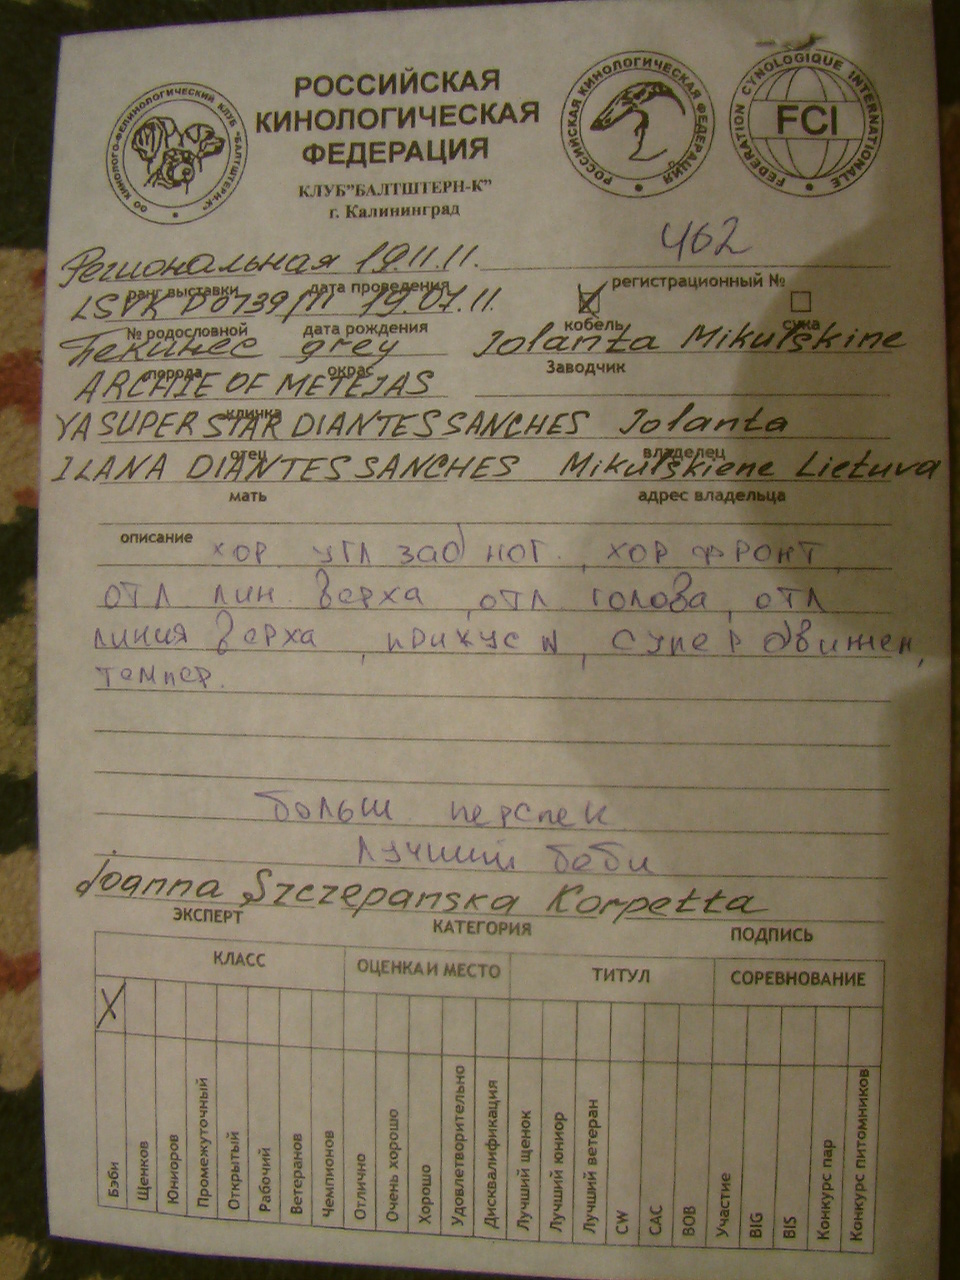 РОССИЙСКАЯ
КИНОЛОГИЧЕСКАЯ
ФЕДЕРАЦИЯ
КЛУБ"БАЛТШТЕРН-К"
г. Калининград
ОО КИНОЛОГО-ФЕЛИНОЛОГИЧЕСКИЙ КЛУБ "БАЛТШТЕРН-К"
РОССИЙСКАЯ КИНОЛОГИЧЕСКАЯ ФЕДЕРАЦИЯ
FEDERATION CYNOLOGIQUE INTERNATIONALE
FCI
462
Региональная 19.11.11.
ранг выставки дата проведения регистрационный №
LSVK P 0739/11 19.07.11.
№ родословной дата рождения кобель сука
Пекинес grey Jolanta Mikulskine
порода окрас Заводчик
ARCHIE OF METEJAS
кличка
YA SUPER STAR DIANTES SANCHES Jolanta
отец владелец
ILANA DIANTES SANCHES Mikulskiene Lietuva
мать адрес владельца
описание хор угл зад ног, хор фронт,
отл лин верха, отл голова, отл
линия верха, прикус N, супер движен,
темпер.
больш перспек
лучший беби
Joanna Szczepanska Korpetta
ЭКСПЕРТ КАТЕГОРИЯ ПОДПИСЬ
КЛАСС ОЦЕНКА И МЕСТО ТИТУЛ СОРЕВНОВАНИЕ
X
Бэби
Щенков
Юниоров
Промежуточный
Открытый
Рабочий
Ветеранов
Чемпионов
Отлично
Очень хорошо
Хорошо
Удовлетворительно
Дисквалификация
Лучший щенок
Лучший юниор
Лучший ветеран
CW
CAC
BOB
Участие
BIG
BIS
Конкурс пар
Конкурс питомников